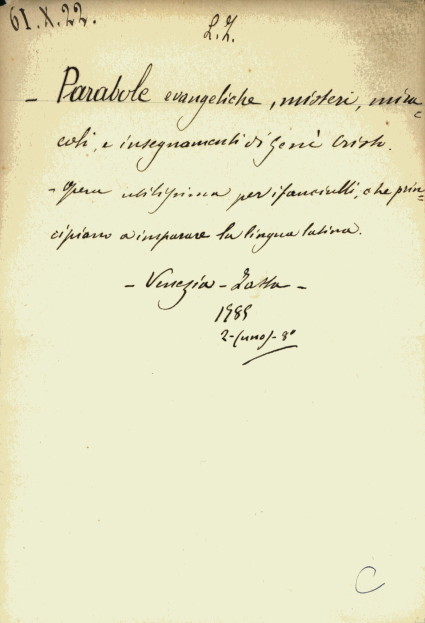 61.X.22.
L.Z.
- Parabole evangeliche, misteri, mira=
coli, e insegnamenti di Gesù Cristo.
- Opera utilissima per i fanciulli, che prin=
cipiano a imparare la lingua latina.
- Venezia - Zatta -
2-(uno)-8°
C